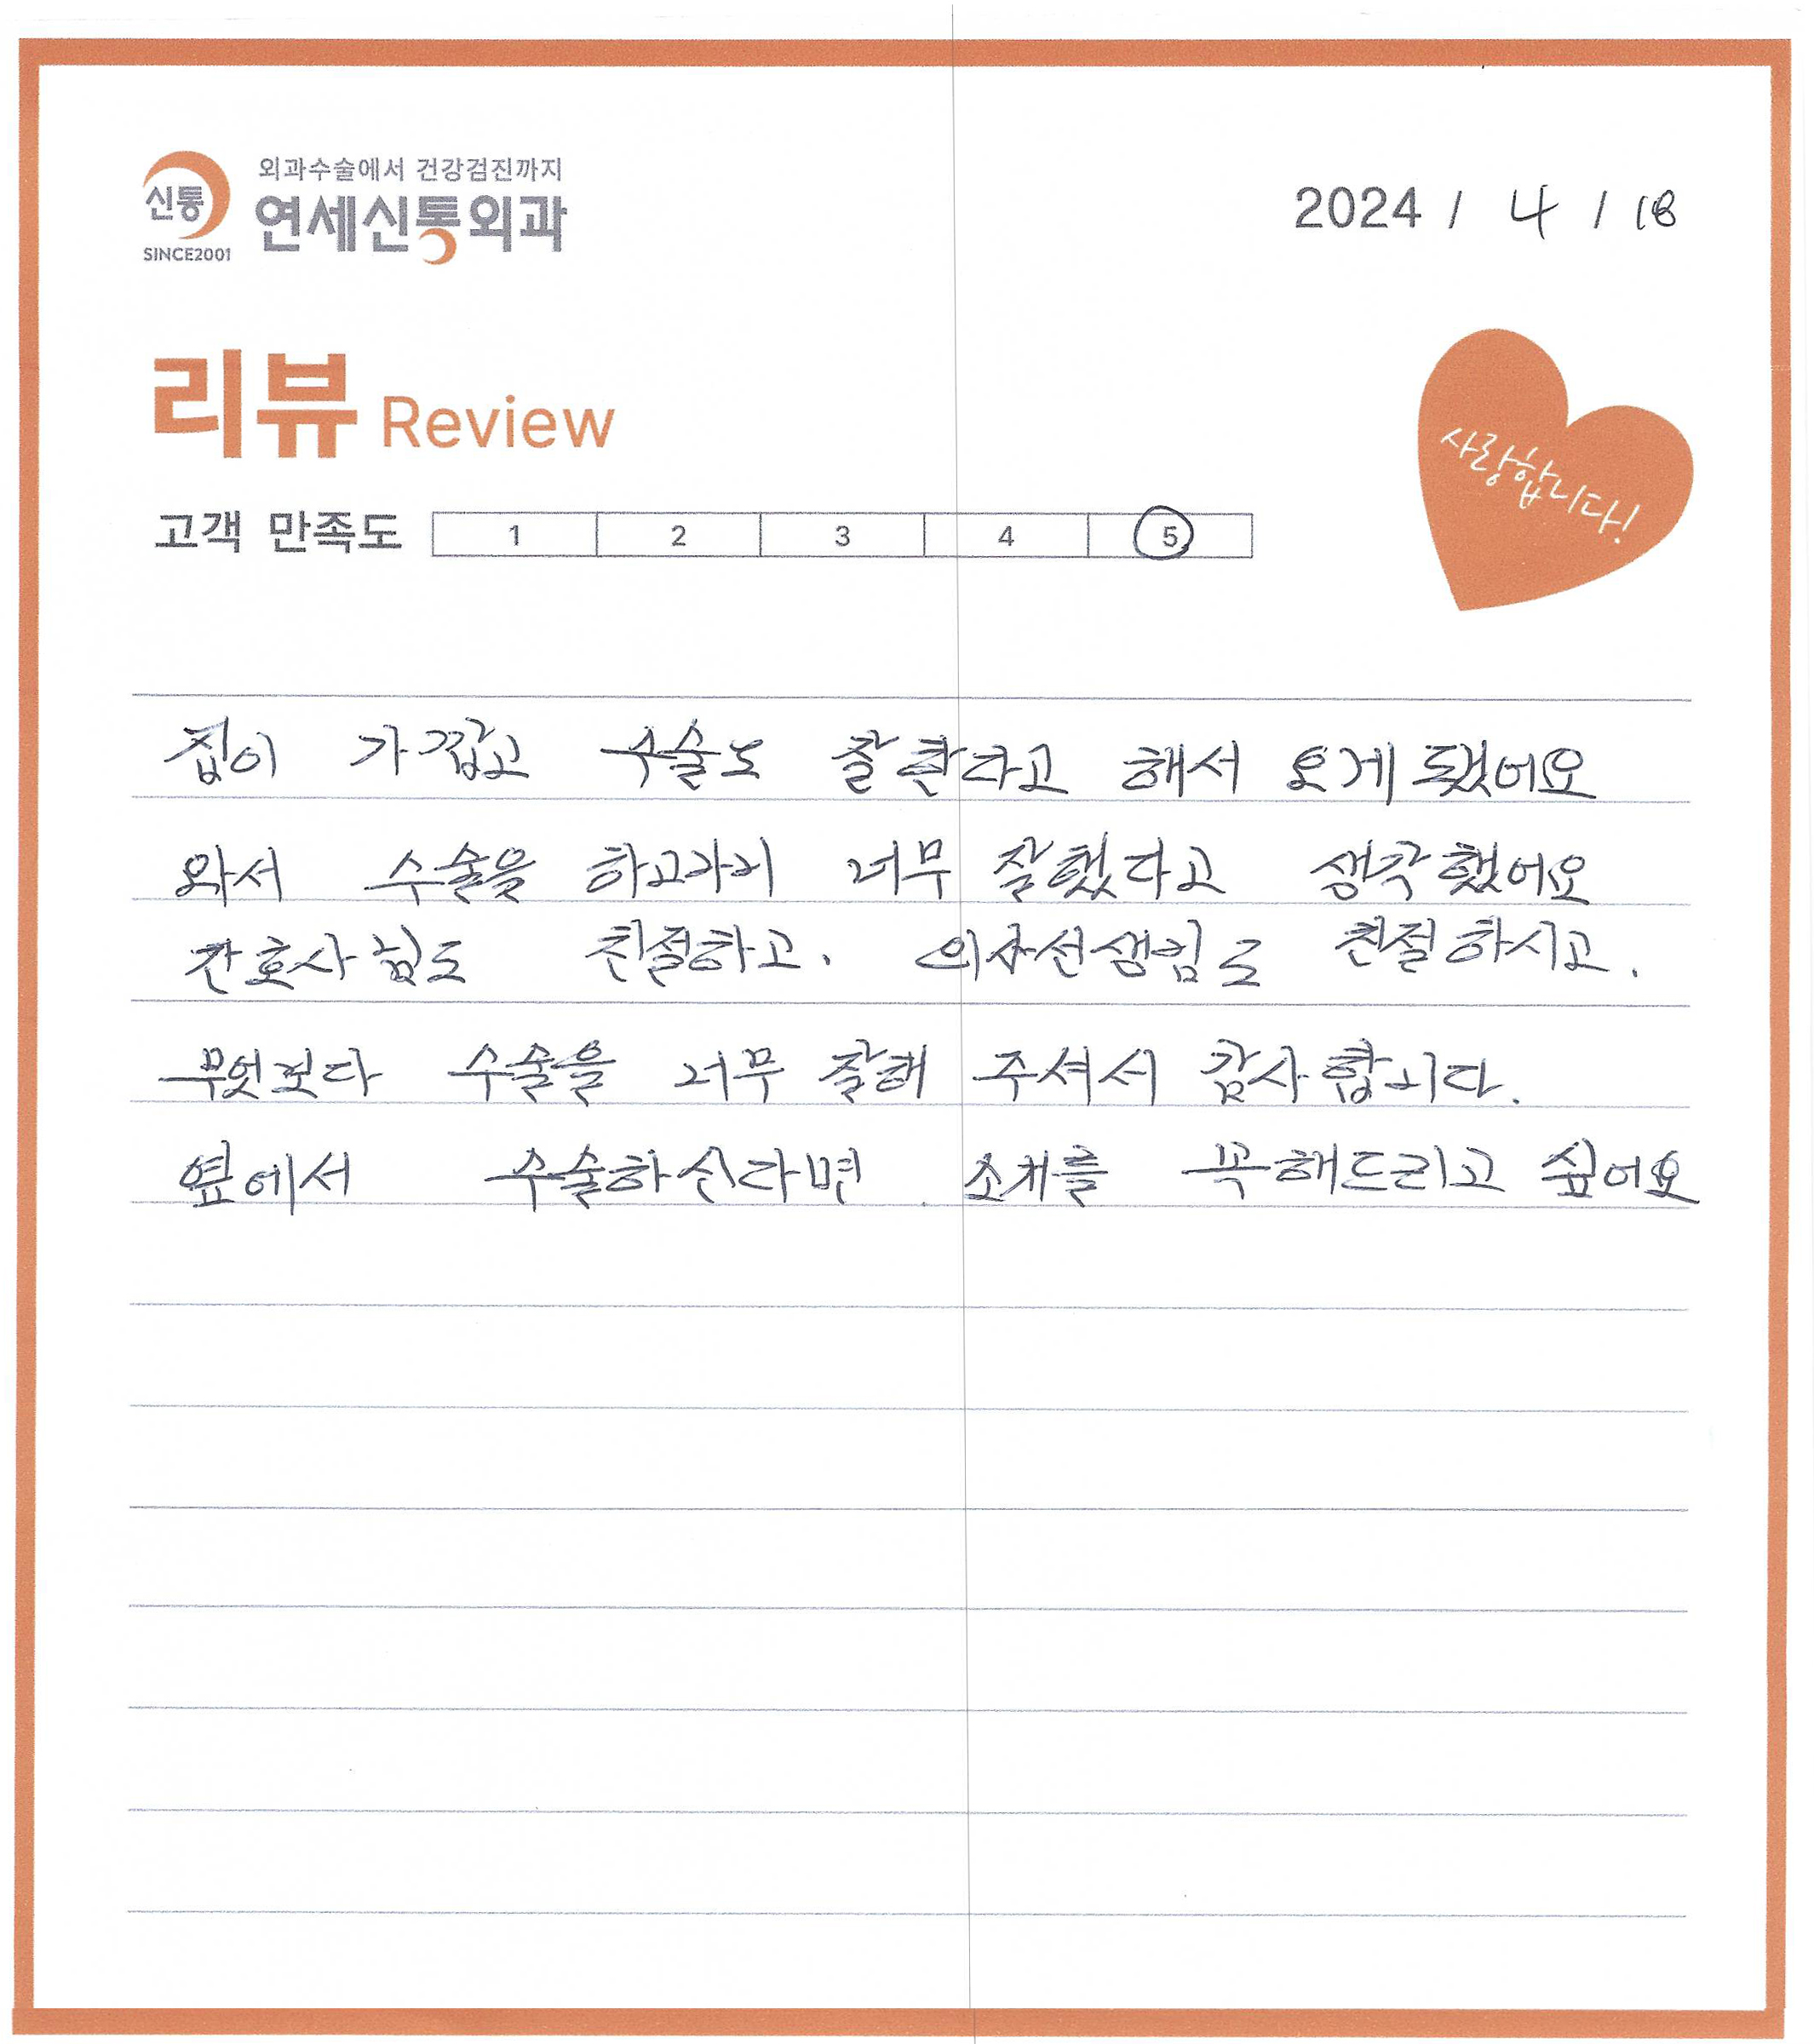 외과수술에서 건강검진까지
신통
연세신통외과
SINCE2001
2024 / 4 / 18
리뷰 Review
사랑합니다!
고객 만족도 1 2 3 4 5
집이 가깝고 수술도 잘한다고 해서 오게 됐어요
와서 수술을 하고나니 너무 잘했다고 생각했어요
간호사님도 친절하고. 의사선생님도 친절하시고.
무엇보다 수술을 너무 잘해 주셔서 감사합니다.
옆에서 수술하신다면 소개를 꼭해드리고 싶어요